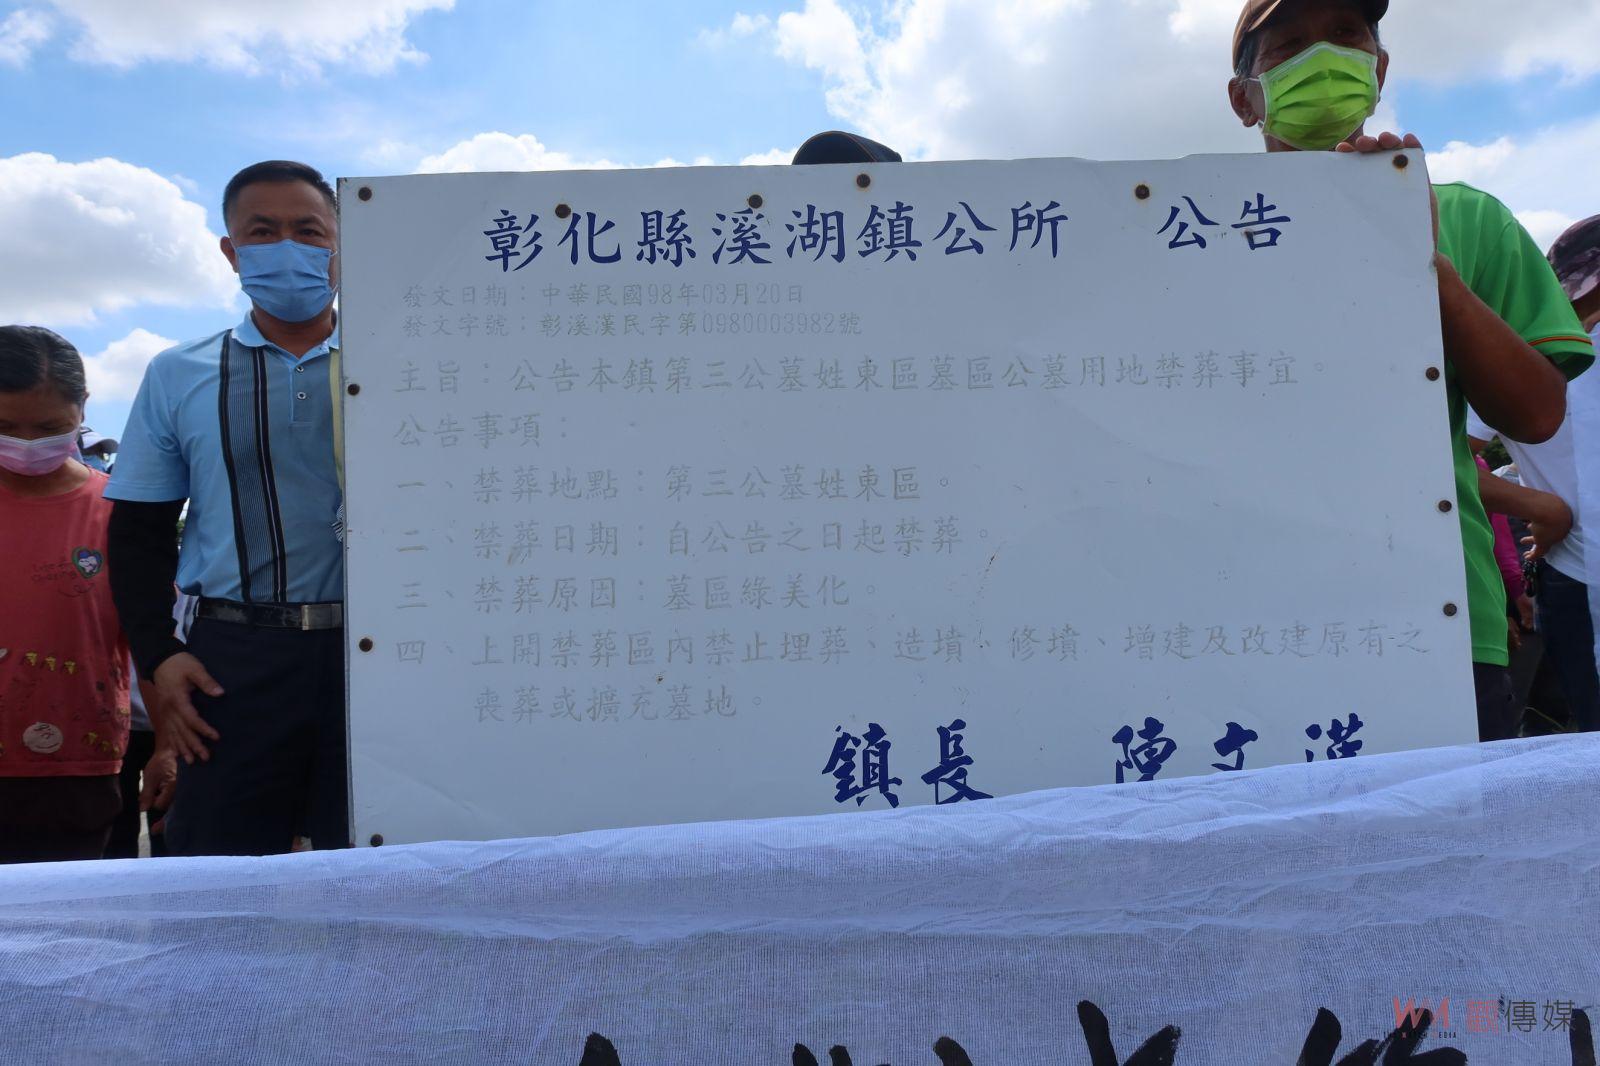 彰化縣溪湖鎮公所　公告
發文日期：中華民國98年03月20日
發文字號：彰溪漢民字第0980003982號
主旨：公告本鎮第三公墓姓東區墓區公墓用地禁葬事宜。
公告事項：
一、禁葬地點：第三公墓姓東區。
二、禁葬日期：自公告之日起禁葬。
三、禁葬原因：墓區綠美化。
四、上開禁葬區內禁止埋葬、造墳、修墳、增建及改建原有之
喪葬或擴充墓地。
鎮長　陳文漢
觀傳媒